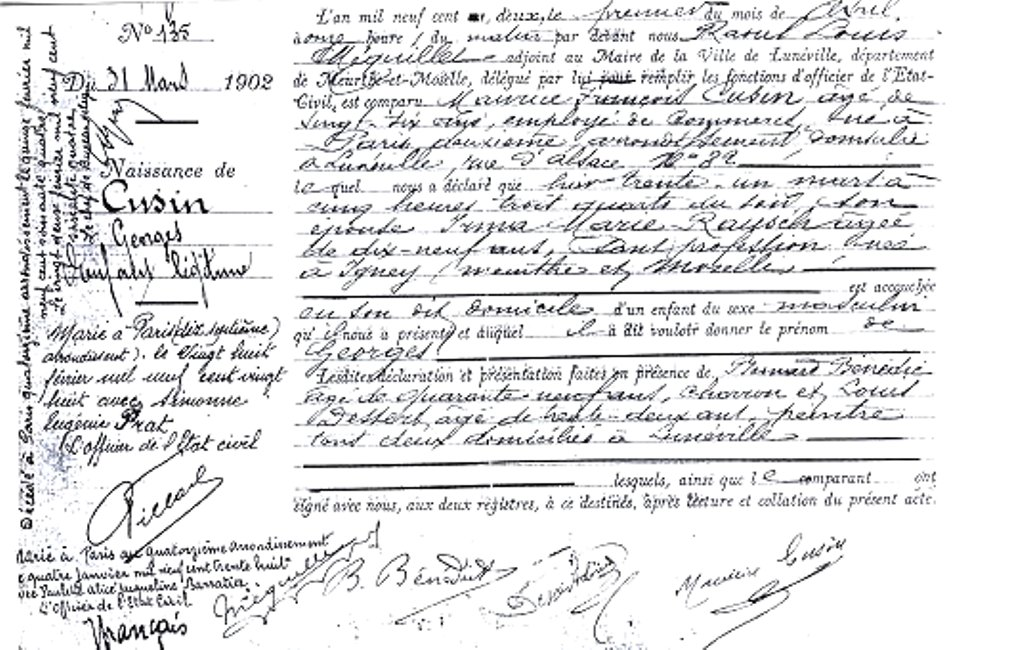 N° 135
Du 31 Mars 1902
Naissance de
Cusin
Georges
Enfant légitime
Marié à Paris (dix septième)
arondissent). le vingt huit
février mil neuf cent vingt
huit avec Simonne
Eugénie Prat
L'officier de l'Etat civil
Marié à Paris au quatorzième arrondissement
le quatre janvier mil neuf cent trente huit
avec Paulette Alice Jacqueline Barratia.
L'Officier de l'Etat Civil
Français
Décédé à Paris quatorzième arrondissement le quinze février mil
neuf cent soixante quatre
Le vingt neuf février mil neuf cent
soixante quatre
L'an mil neuf cent deux, le premier du mois de Avril,
à onze heure du matin par devant nous Raoul Louis
Méquillet adjoint au Maire de la Ville de Lunéville, département
de Meurthe-et-Moselle, délégué par lui pour remplir les fonctions d'officier de l'Etat-
Civil, est comparu Maurice François Cusin, âgé de
vingt-six ans, employé de commerce, né à
Paris, douzième arrondissement, domicilié
à Lunéville, rue d'Alsace N° 82
lequel nous a déclaré que hier trente-un mars à
cinq heures trois quarts du soir, son
épouse Irma Marie Raysch âgée
de dix-neuf ans, sans profession, née
à Igney (Meurthe et Moselle)
est accouchée
en son dit domicile d'un enfant du sexe masculin
qu'il nous a présenté et auquel il a dit vouloir donner le prénom de
Georges
Lesdites déclaration et présentation faites en présence de Bernard Bénedic
âgé de quarante-neuf ans, charron et Louis
âgé de trente-deux ans, peintre
tous deux domiciliés à Lunéville
lesquels, ainsi que le comparant ont
signé avec nous, aux deux régistres, à ce destinés, après lecture et collation du présent acte.
Méquillet B. Bénedic Maurice Cusin